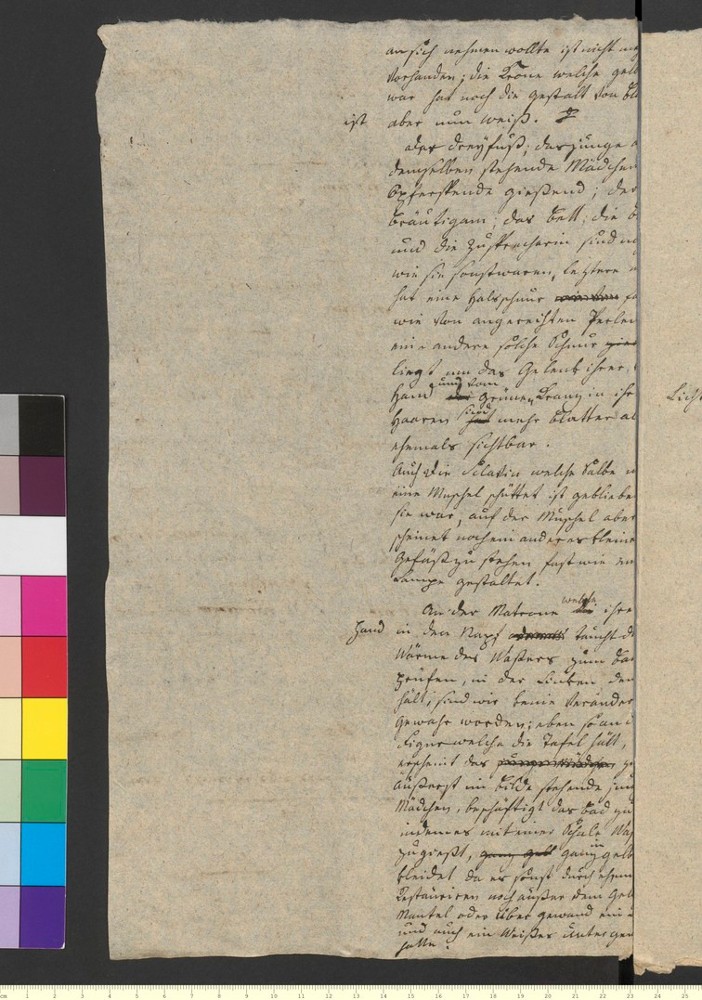 an sich nehmen wollte ist nicht me
vorhanden; die Krone welche gelb
war hat noch die Gestalt von bl
ist aber nun weiß.
der Dreyfuß; das junge
demselben stehende Mädchen
Opferspende gießend; der
Bräutigam; das Bett; die B
und die Zusprecherin sind
wie sie sonst waren, letztere
hat eine Halsschnur
wie von angereihten Perlen
eine andere solche Schnur
liegt um das Gelenk ihrer
Hand und vom grünen Kranz in ihr
Haaren sind mehr Blätter al
ehemals sichtbar.
Auch die Sclavin welche Salbe
eine Muschel schüttet ist gebliebe
sie war, auf der Muschel aber
scheinet noch ein anderes kleine
Gefäß zu stehen fast wie ein
Lampe gestaltet.
An der Matrone welche ihre
Hand in den Napf taucht d
Wärme des Waßers zum Ba
prüfen, in der Linken den
hält, sind wir keine Veränder
gewahr worden; eben so an
Figur welche die Tafel hält,
erscheint das
äußerst im Bilde stehende jun
Mädchen, beschäftigt das Bad
indem es mit einer Schale Wa
zugießt, ganz in gelb
kleidet da es sonst durch
Restauriren noch außer dem Gel
Mantel oder Über gewand ein
und auch ein Weißes Unterge
hatte.
Licht